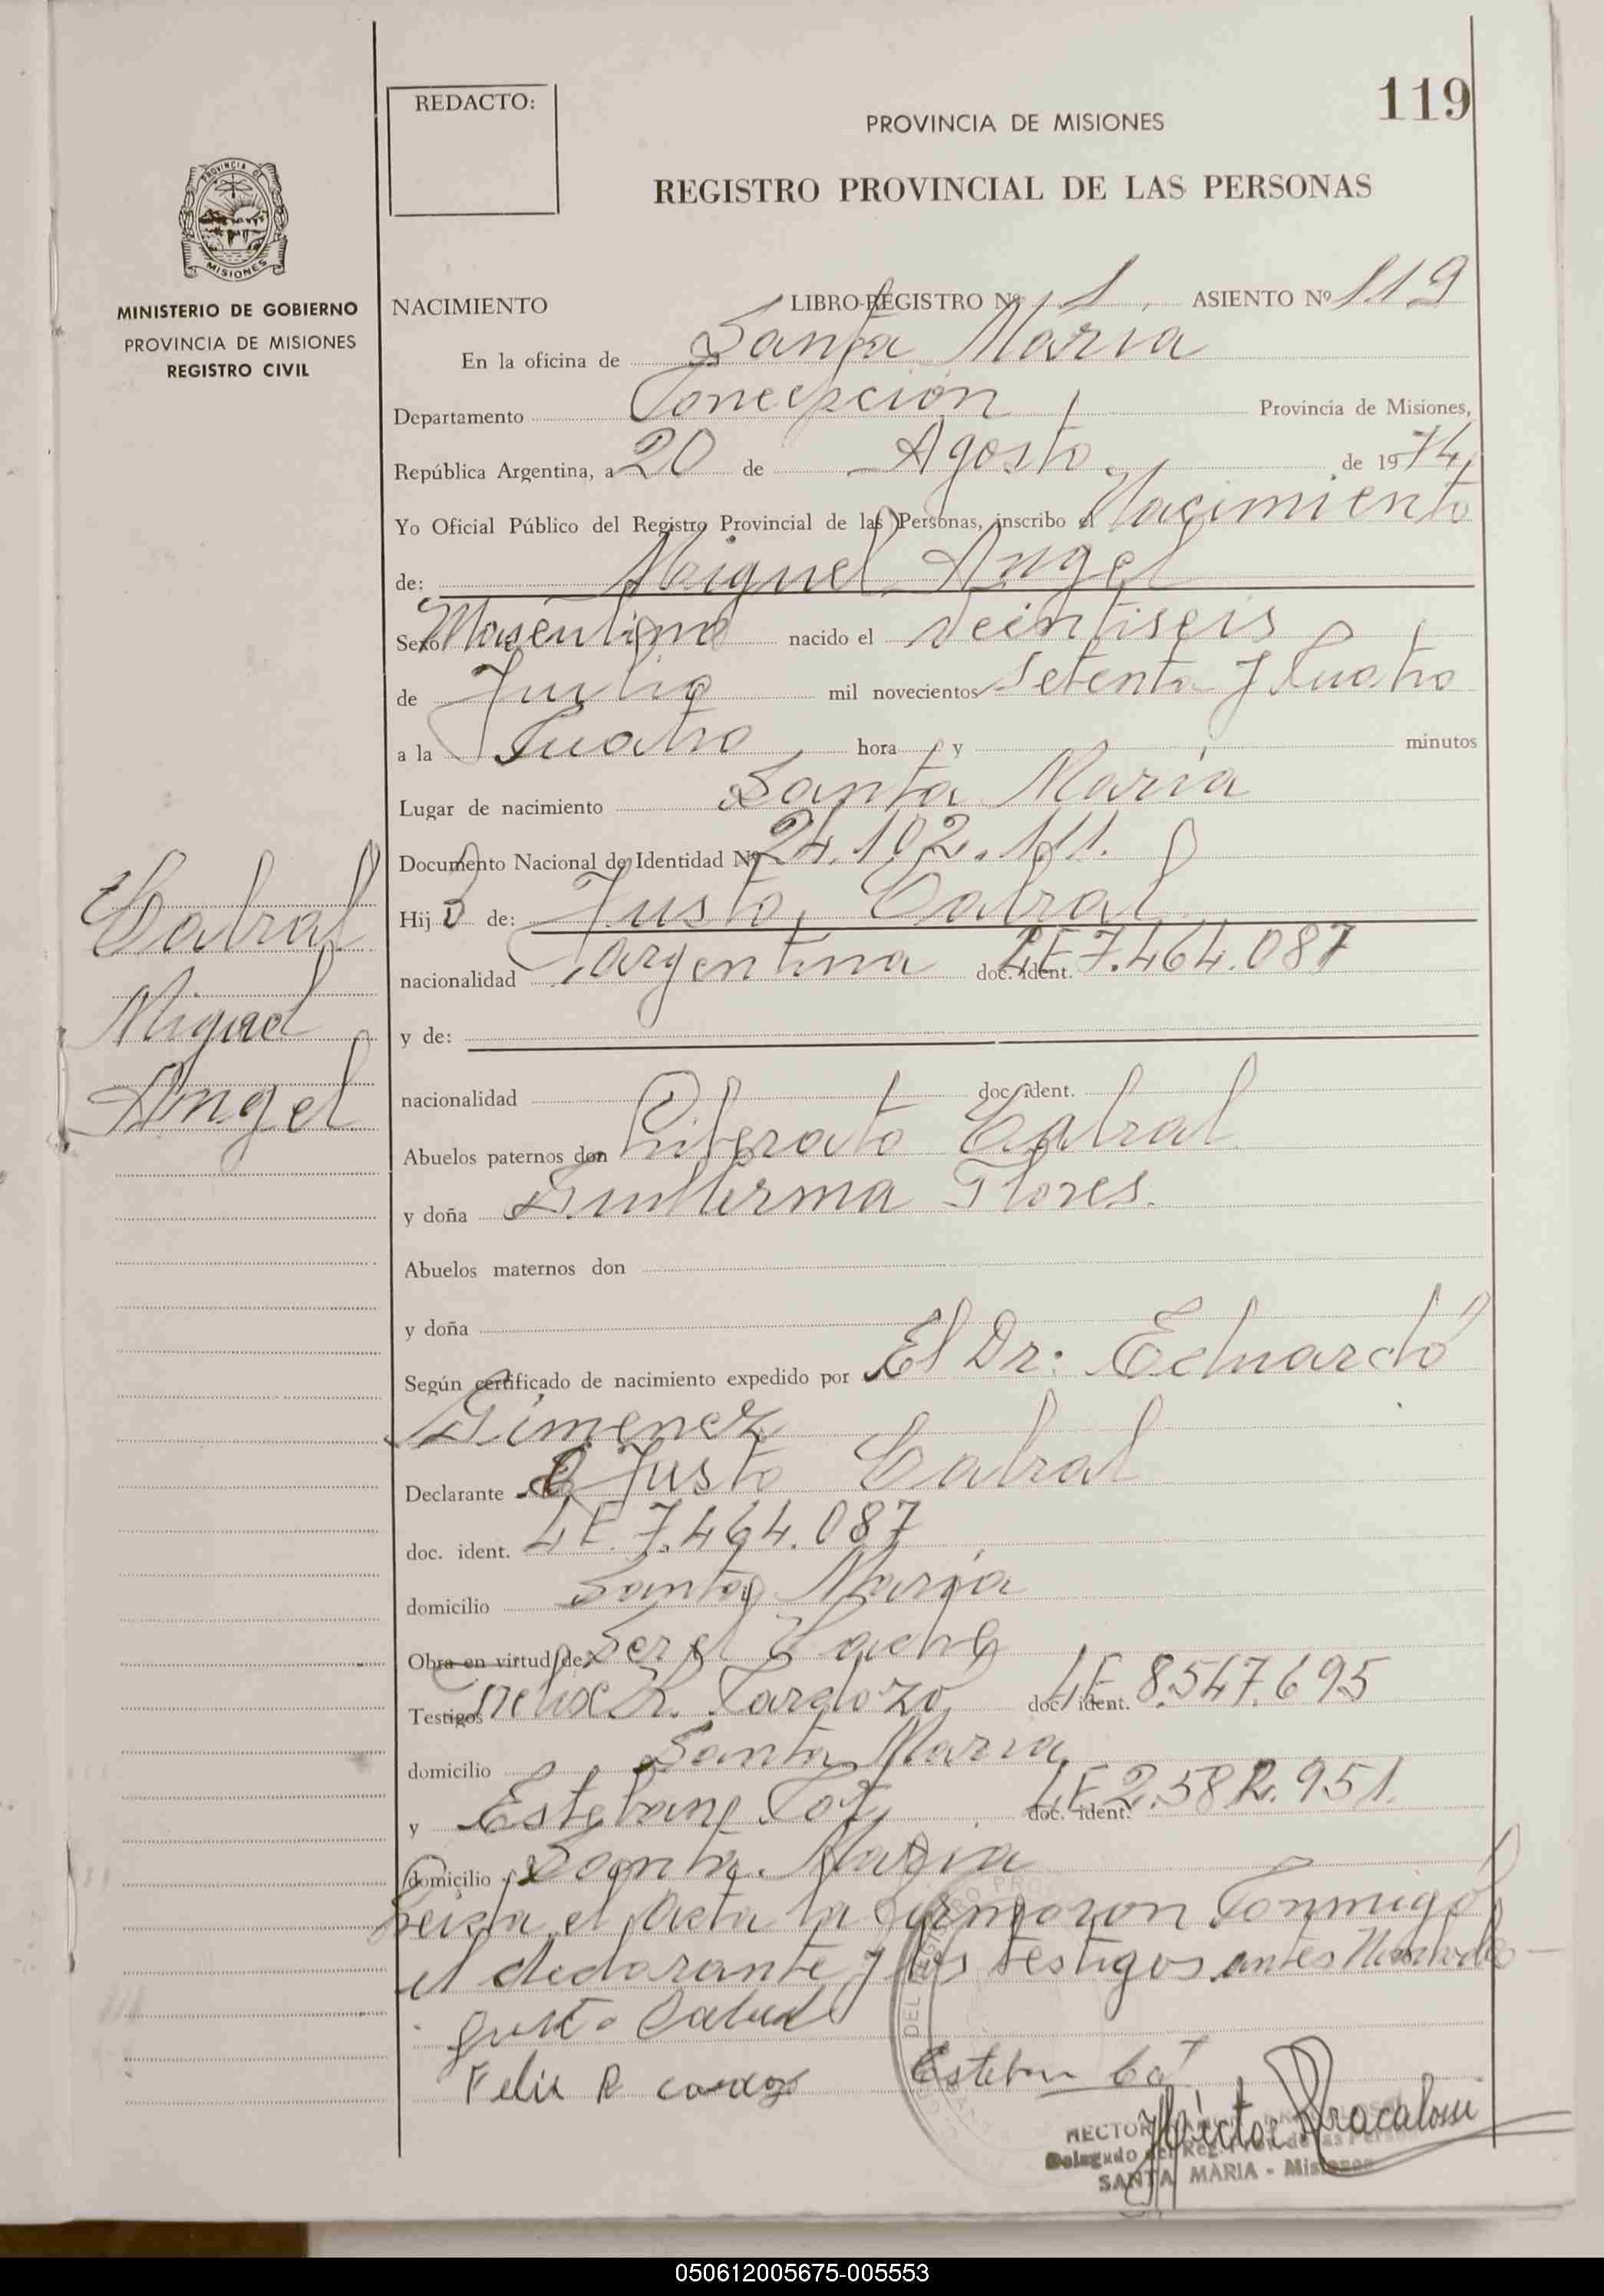 119
REDACTO:
PROVINCIA DE MISIONES
REGISTRO PROVINCIAL DE LAS PERSONAS
PROVINCIA DE
MISIONES
MINISTERIO DE GOBIERNO
PROVINCIA DE MISIONES
REGISTRO CIVIL
NACIMIENTO LIBRO-REGISTRO Nº 1 ASIENTO Nº 119
En la oficina de Santa Maria
Departamento Concepción Provincia de Misiones,
República Argentina, a 20 de Agosto de 1974
Yo Oficial Público del Registro Provincial de las Personas, inscribo el Nacimiento
de: Miguel Angel
Sexo Masculino nacido el veintiseis
de Julio mil novecientos Setenta y Cuatro
a la Cuatro hora y minutos
Lugar de nacimiento Santa Maria
Documento Nacional de Identidad Nº 24.102.111.
Hijo de: Justo Cabral
nacionalidad argentina doc. ident. LE 7.464.087
y de:
nacionalidad doc. ident.
Abuelos paternos don Liberato Cabral
y doña Guillerma Flores.
Abuelos maternos don
y doña
Según certificado de nacimiento expedido por El Dr: Eduardo
Gimenez
Declarante Justo Cabral
doc. ident. LE. 7.464.087
domicilio Santa Maria
Obra en virtud de Ser el Padre
Testigos Felix R. Cardozo doc. ident. LE 8.547.695
domicilio Santa Maria
y Esteban doc. ident. LE 2.582.951.
domicilio Santa Maria
el Acta la firmaron Conmigo
el declarante y los testigos antes
Justo Cabral
Felix R Esteban
Héctor Bracalossi
HECTOR
Delegado del Reg. Prov. de las
SANTA MARIA - Misiones
Cabral
Miguel
Angel
050612005675-005553